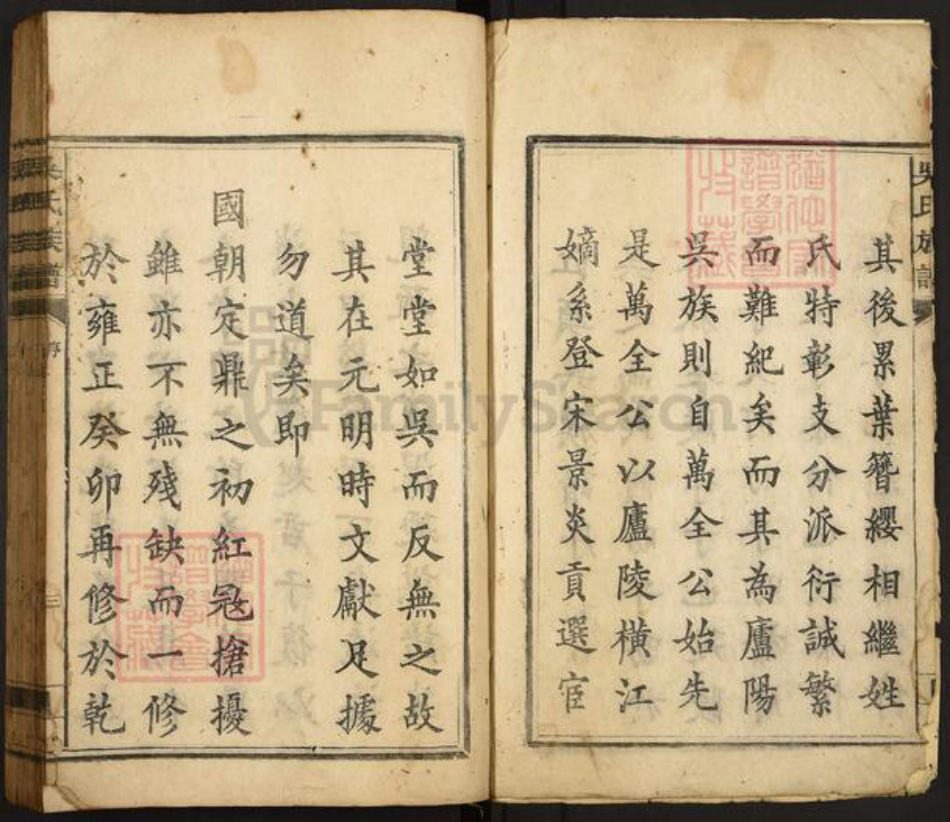 其後累葉簪纓相繼姓
氏特彰支分派衍誠繁
而難紀矣而其為廬陽
吳族則自萬全公始先
是萬全公以廬陵橫江
嫡系登宋景炎貢選宦
堂堂如吳而反無之故
其在元明時文獻足據
勿道矣即
國朝定鼎之初紅冦搶擾
雖亦不無殘缺而一修
於雍正癸卯再修於乾
吳氏族譜
序
FamilySearch